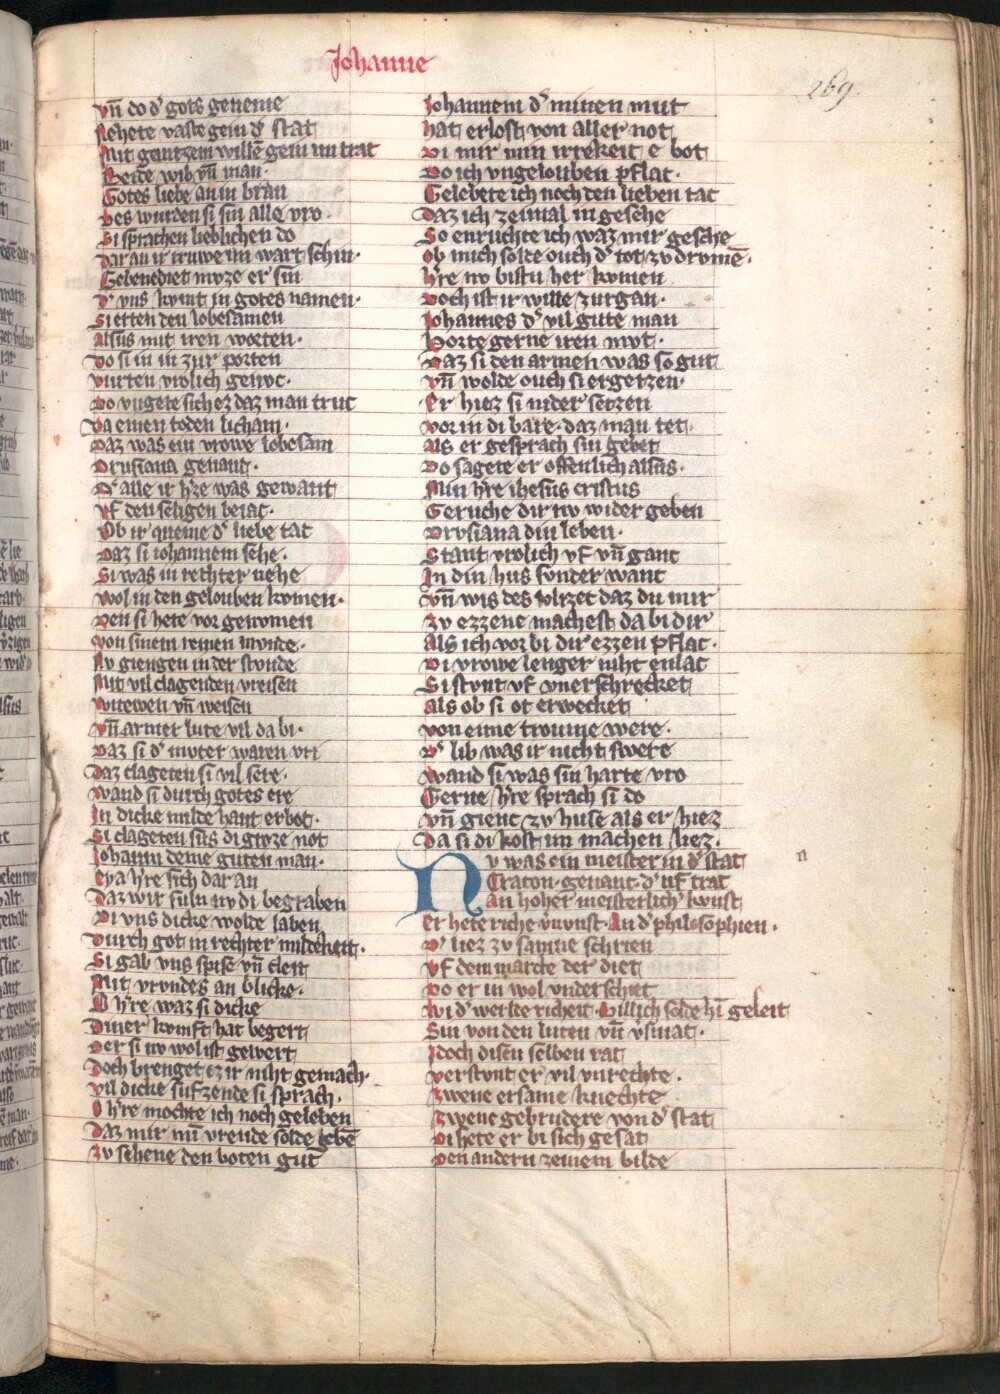 Johanne
269
vn̄ do d' gots geneme
Nehete vaste gein d' stat
Mit gantzem willē gein im trat
Beide wib vn̄ man·
Gotes liebe an in bran
Des wurden si sin alle vro·
Si sprachen lieblichen do
Dar an ir truwe im wart schin·
Gebenediet mvze er sin
D' vns kvmt in gotes namen·
Si erten den lobesamen
Alsus mit iren worten·
Do si in in zur porten
Vurten vrolich genvc·
Do vugete sich ez daz man truc
Da einen toden licham·
Daz was ein vrowe lobesam
Drusiana genant·
D' alle ir h're was gewant
Vf den seligen beiac·
Ob ir queme d' liebe tac
Daz si iohannem sehe·
Si was in rechter nehe
Wol in den gelouben kvmen·
Den si hete vor genvmen
Von sinem reinen mvnde·
Nv giengen in der stvnde
Mit vil clagenden vreisen
Witewen vn̄ weisen
Vn̄ armer lute vil da bi·
Daz si d' mvter waren vri
Daz clageten si vil sere·
Wand si durch gotes ere
In dicke milde hant erbot·
Si clageten sus di groze not
Johanni deme guten man·
Eya h're sich dar an
Daz wir suln nv di begraben
Di vns dicke wolde laben
Durch got in rechter mildekeit·
Si gab vns spise vn̄ cleit
Mit vrvndes an blicke·
O h're waz si dicke
Diner kvmft hat begert
Der si nv wol ist gewert
Doch brenget ez ir niht gemach·
Vil dicke sufzende si sprach·
O h're mochte ich noch geleben
Daz mir min vreude solde gebē
Zv sehene den boten gut
Johannem d' minen mut
Hat erlost von aller not
Di mir min irrekeit e bot
Do ich vngelouben pflac·
Gelebete ich noch den lieben tac
Daz ich zeimal in gesehe
So enruchte ich waz mir geschē
Ob mich solde ouch d' tot zv drvmē·
H're nv bistu her kvmen
Doch ist ir wille zurgan·
Johannes d' vil gute man
Horte gerne iren mvt·
Daz si den armen was so gut
Vn̄ wolde ouch si ergetzen·
Er hiez si nider setzen
Vor in di bare· daz man tet·
Als er gesprach sin gebet
Do sagete er offenlich alsus·
Min h're ihesus cristus
Geruche dir nv wider geben
Drvsiana din leben·
Stant vrolich vf vn̄ ganc
In din hus sunder wanc
Vn̄ wis des vlizec daz du mir
Zv ezzene machest da bi dir
Als ich vor bi dir ezzen pflac·
Di vrowe lenger niht enlac
Si stvnt vf vnerschrecket
Als ob si ot erwecket
Von eime troume were·
D' lib was ir nicht swere
Wand si was sin harte vro
Gerne h're sprach si do
Vn̄ gienc zv huse als er hiez
Da si di kost im machen liez·
Nv was ein meister in d' stat
Craton· genant· d' uf trat
An hoher meisterlich' kvnst
Er hete riche v'nvnst· An d' philosophien·
D' liez zv samne schrien
Vf dem marcte der diet
Do er in wol vnderschiet
Wi d' werlde richeit· billich solde hī geleit
Sin von den luten vn̄ v'smat·
Idoch disen selben rat
Verstvnt er vil vnrechte·
Zwene ersame knechte
Zwene gebrudere von d' stat
Di hete er bi sich gesat
Den andern zeinem bilde
n